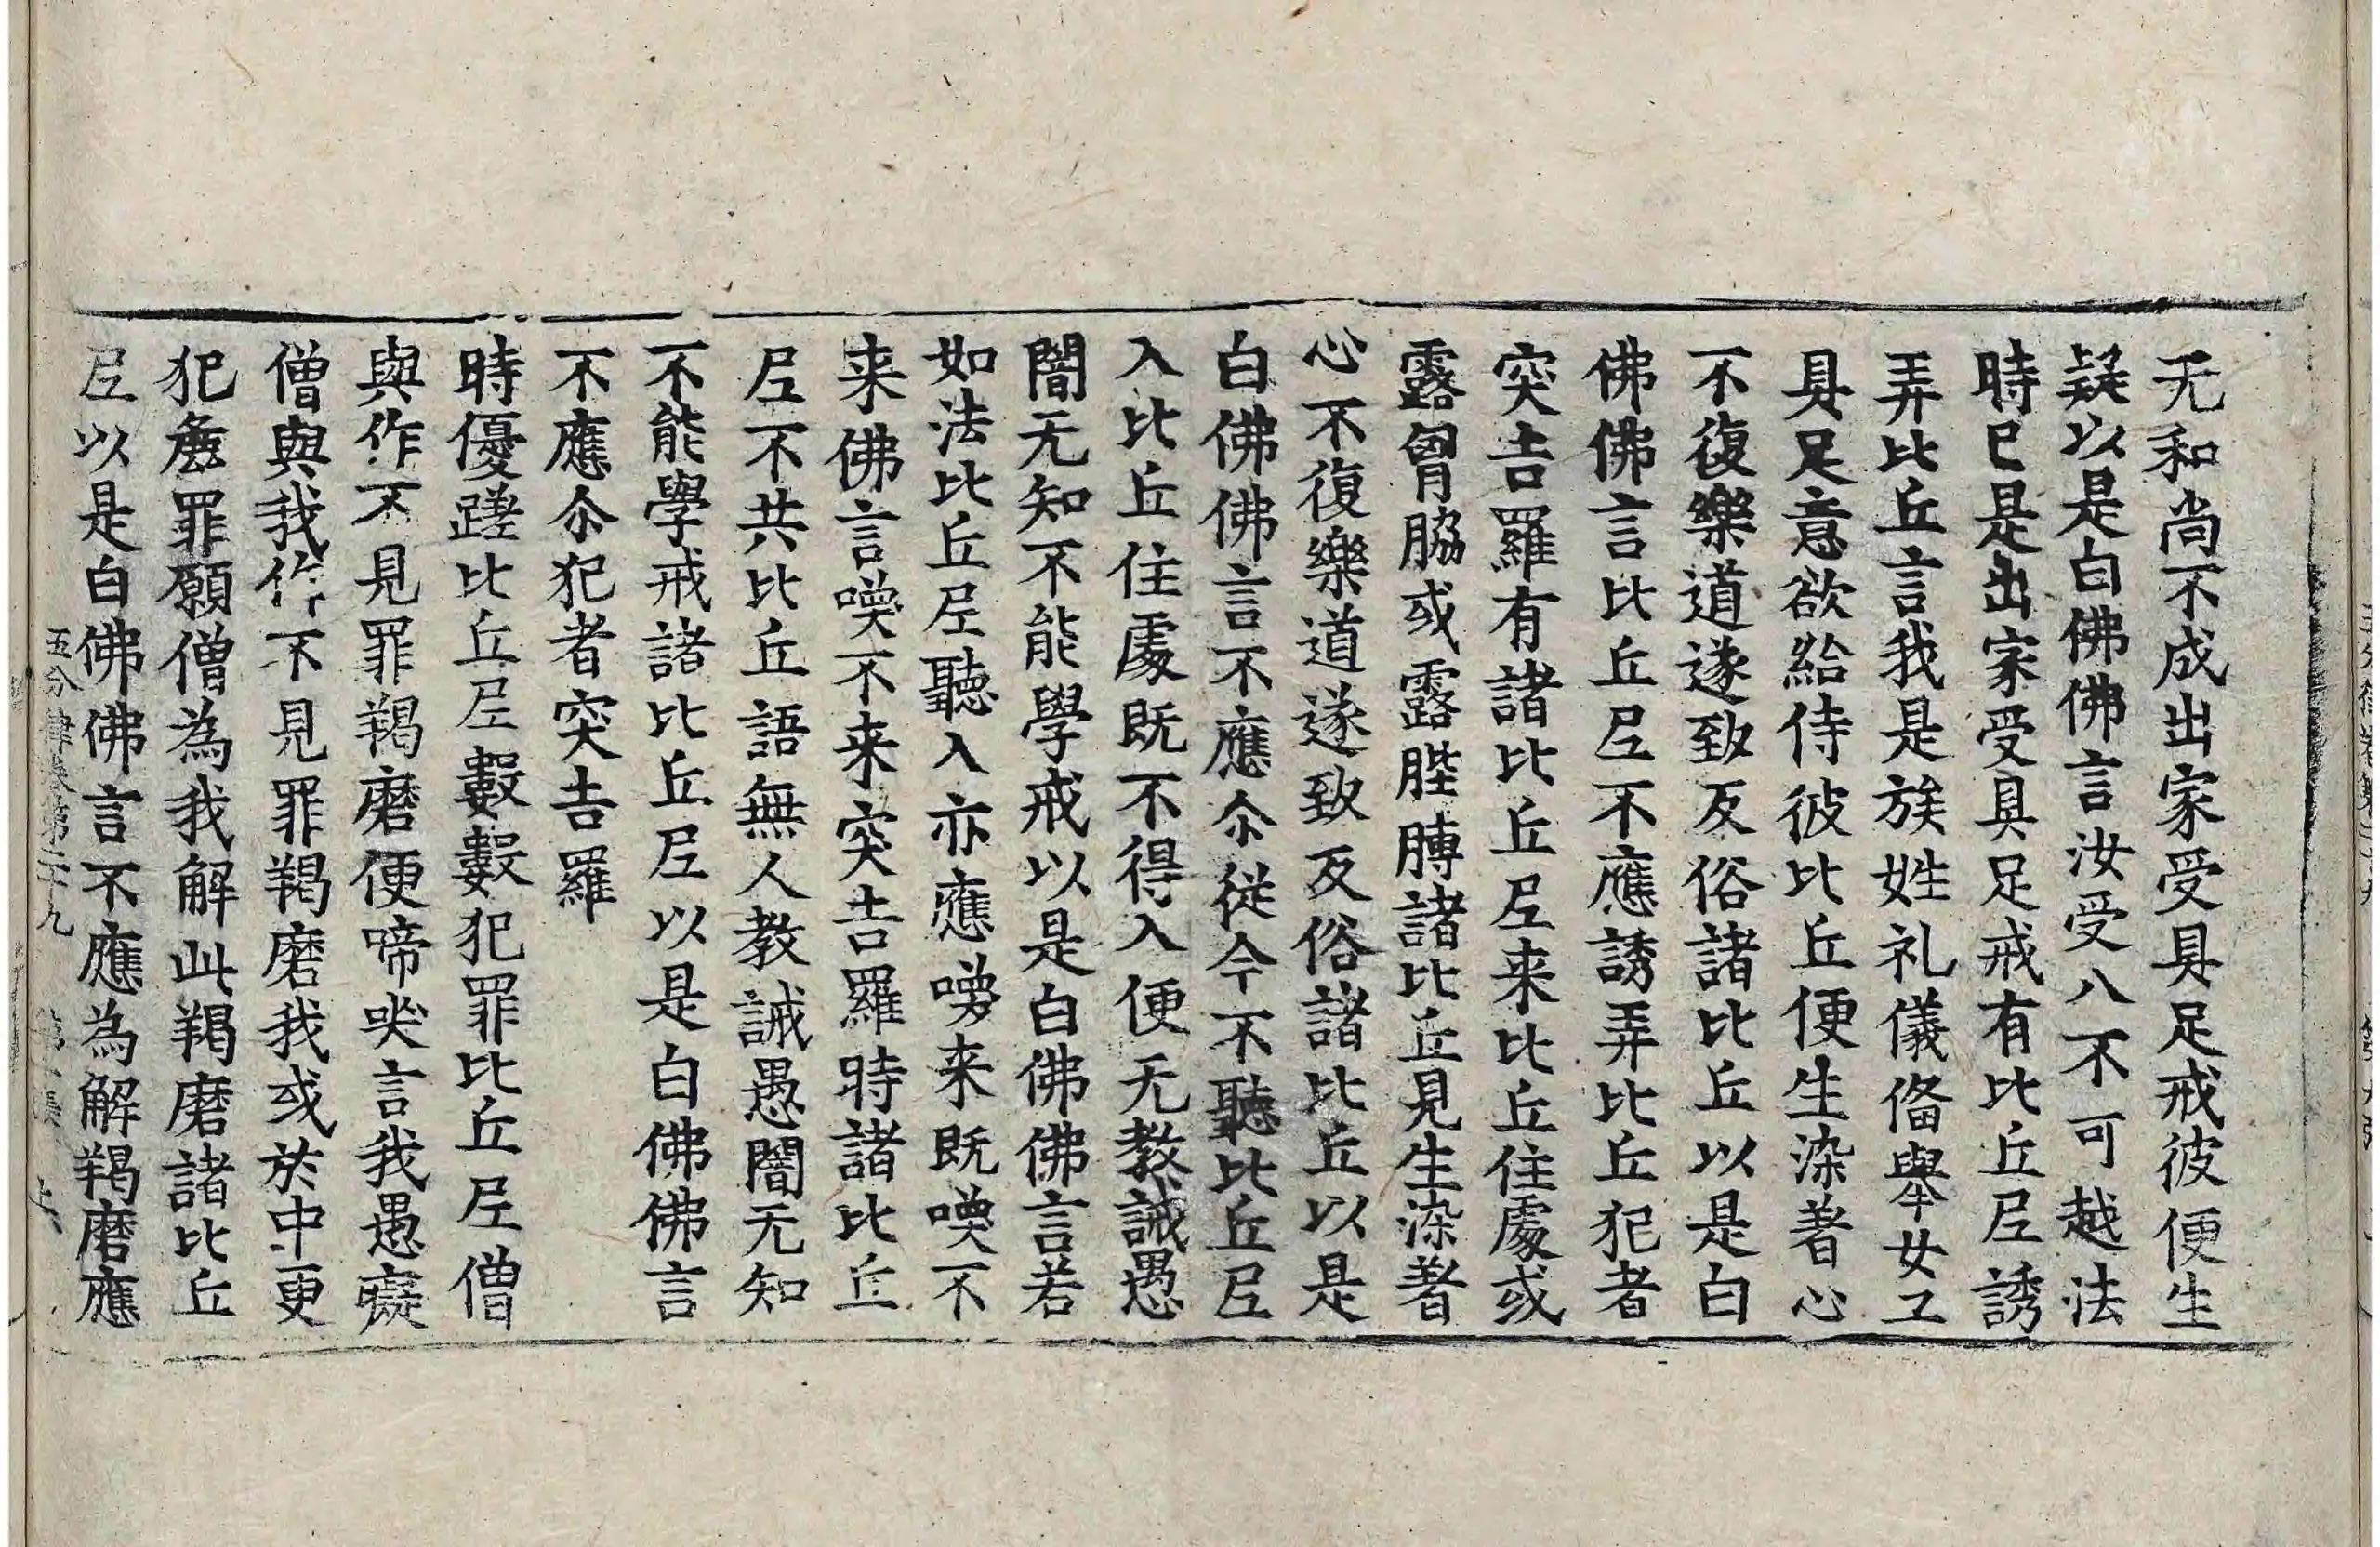 无和尚不成出家受具足戒彼便生
疑以是白佛佛言汝受八不可越法
時已是出家受具足戒有比丘尼誘
弄比丘言我是族姓礼儀俻舉女工
具足意欲給侍彼比丘便生染著心
不復樂道遂致反俗諸比丘以是白
佛佛言比丘尼不應誘弄比丘犯者
突吉羅有諸比丘尼来比丘住處或
露胷脇或露䏶膊諸比丘見生染著
心不復樂道遂致反俗諸比丘以是
白佛佛言不應尒從今不聽比丘尼
入比丘住處既不得入便无教誡愚
闇无知不能學戒以是白佛佛言若
如法比丘尼聽入亦應喚来既喚不
来佛言喚不来突吉羅時諸比丘
尼不共比丘語無人教誡愚闇无知
不能學戒諸比丘尼以是白佛佛言
不應尒犯者突吉羅
時優蹉比丘尼數數犯罪比丘尼僧
與作不見罪羯磨便啼哭言我愚癡
僧與我作不見罪羯磨我或於中更
犯麁罪願僧為我解此羯磨諸比丘
尼以是白佛佛言不應為解羯磨應
五分律卷第二十九